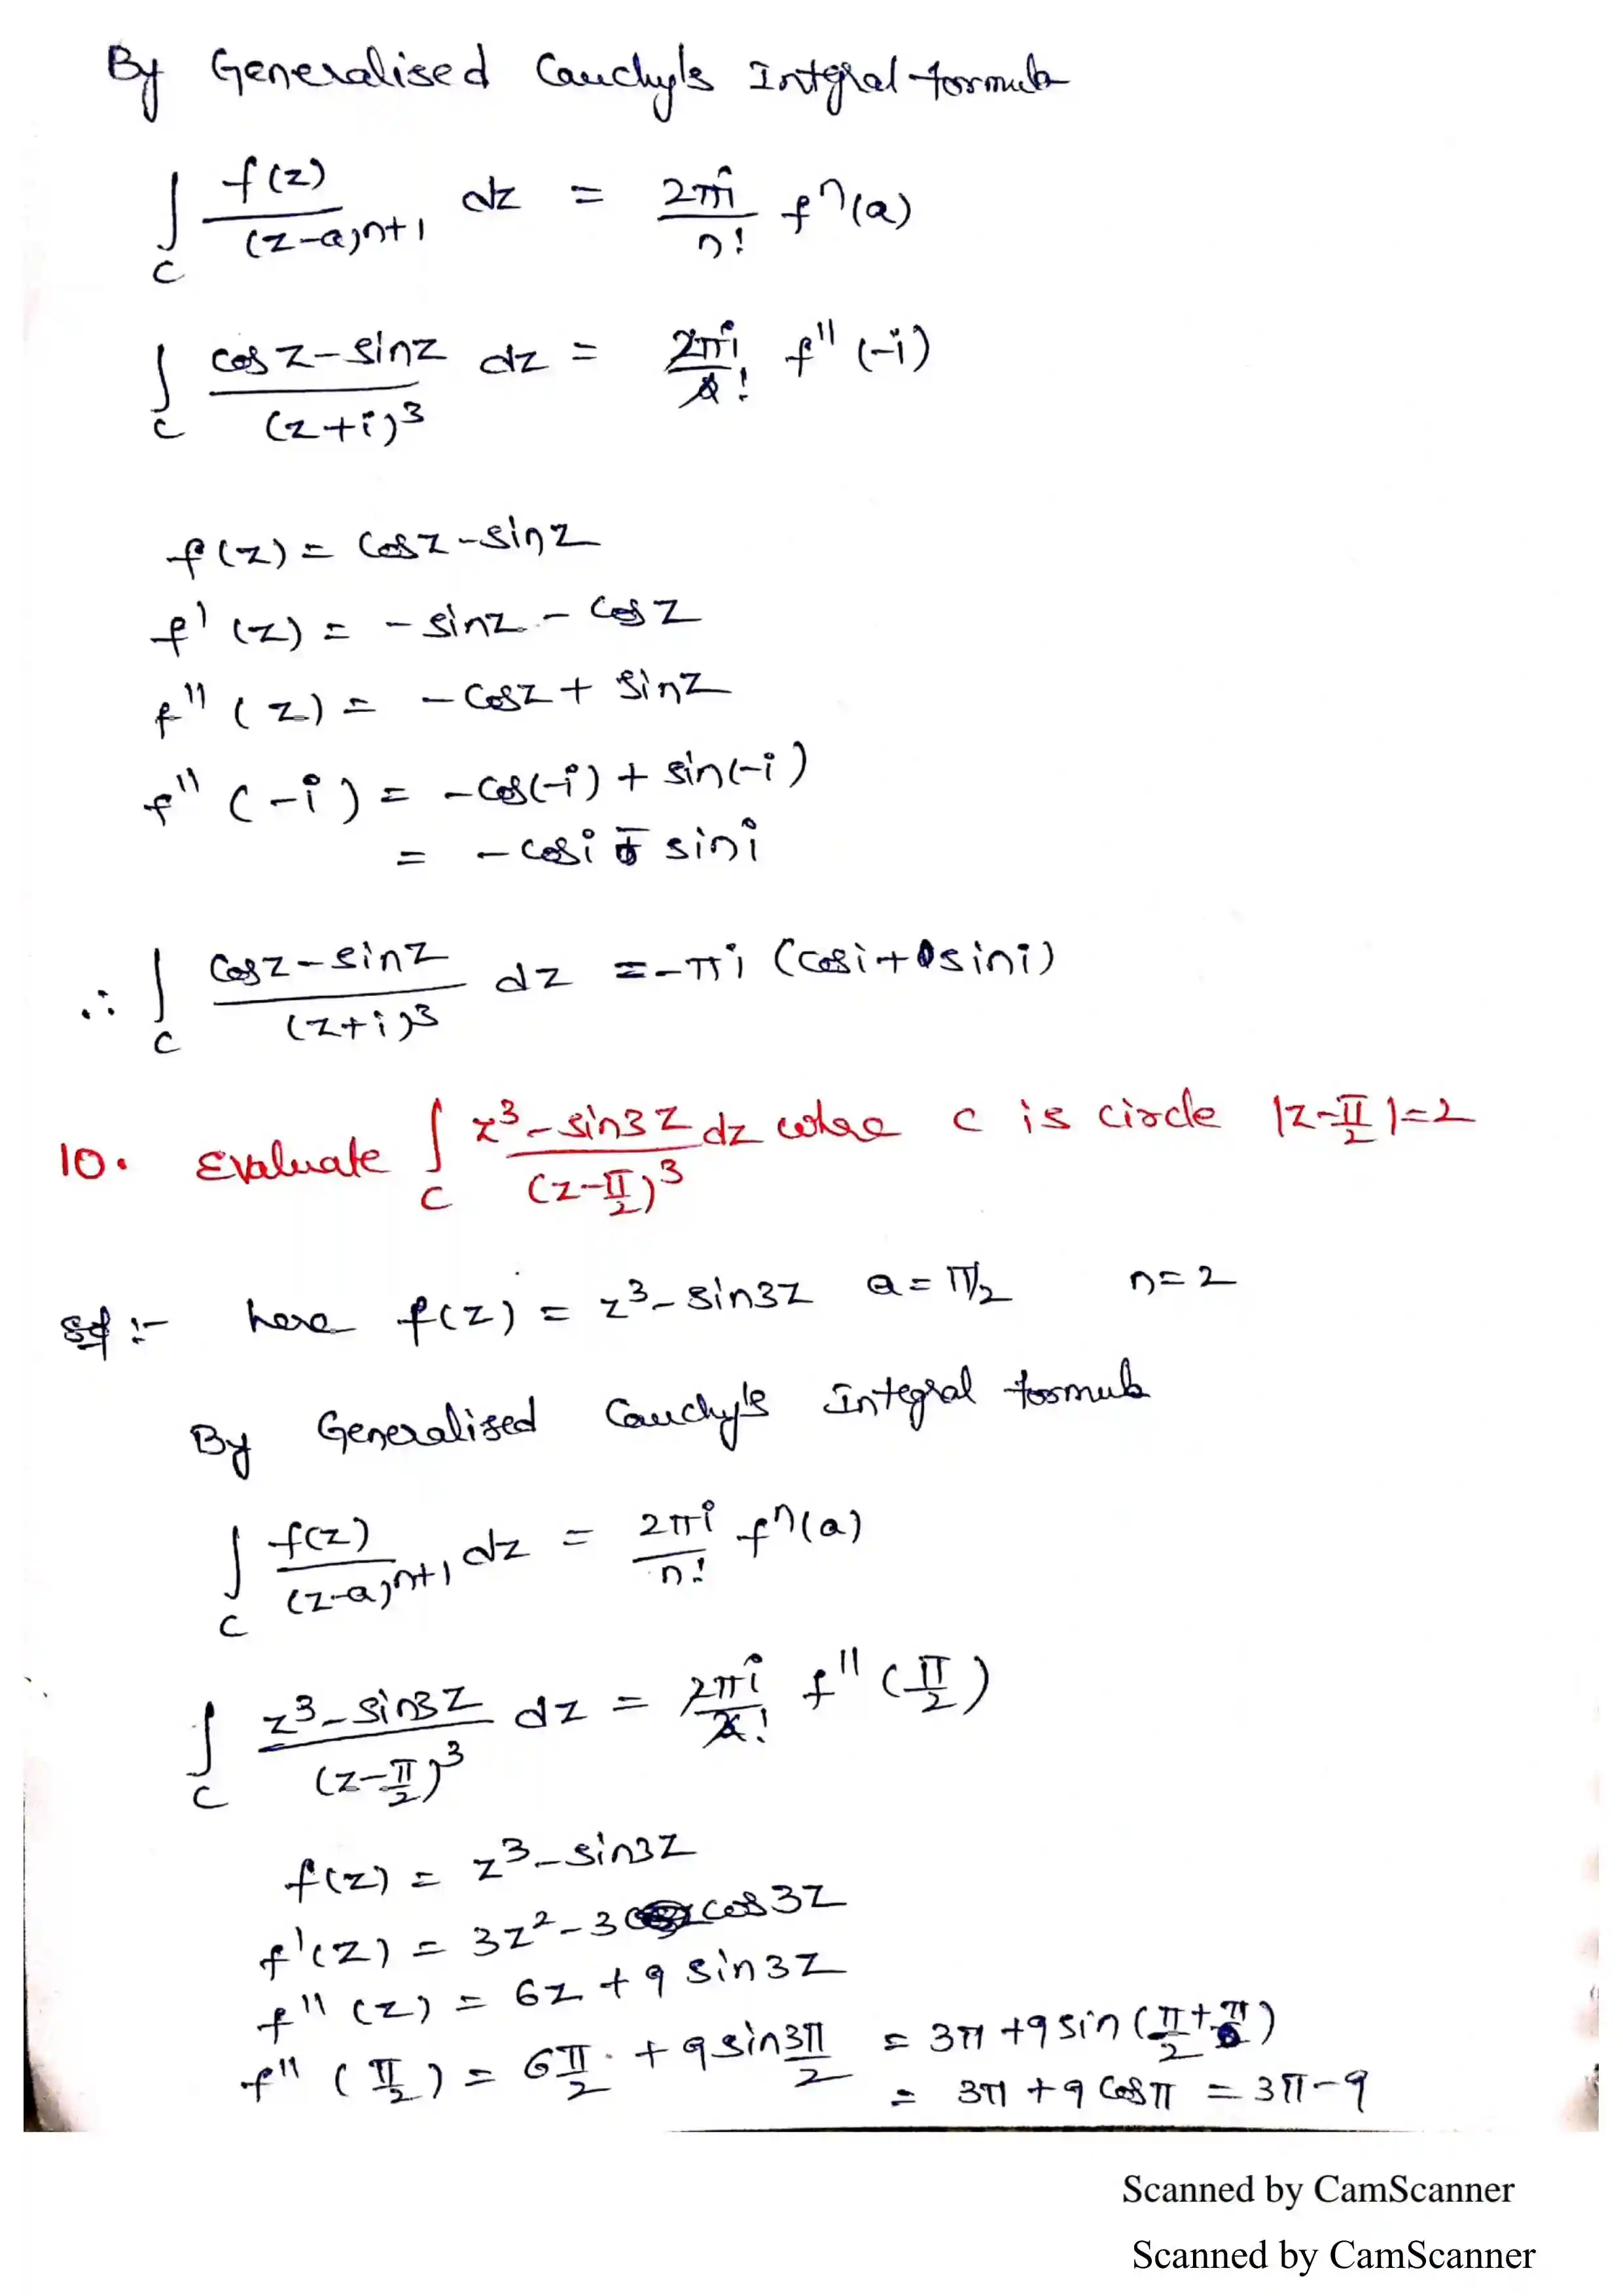 By Generalised Cauchy's Integral formula
∫_C f(z)/(z-a)^{n+1} dz = 2πi/n! f^n(a)
∫_C (cos z - sin z)/(z+i)^3 dz = 2πi/2! f''(-i)
f(z) = cos z - sin z
f'(z) = - sin z - cos z
f''(z) = - cos z + sin z
f''(-i) = - cos(-i) + sin(-i)
= - cos i - sin i
∴ ∫_C (cos z - sin z)/(z+i)^3 dz = -πi (cos i + sin i)
10. Evaluate ∫_C (z^3 - sin3z)/(z - π/2)^3 dz where c is circle |z - π/2| = 2
Sol :- here f(z) = z^3 - sin3z a = π/2 n = 2
By Generalized Cauchy's Integral formula
∫_C f(z)/(z-a)^{n+1} dz = 2πi/n! f^n(a)
∫_C (z^3 - sin3z)/(z - π/2)^3 dz = 2πi/2! f''(π/2)
f(z) = z^3 - sin3z
f'(z) = 3z^2 - 3 cos 3z
f''(z) = 6z + 9 sin 3z
f''(π/2) = 6π/2 + 9 sin 3π/2 = 3π + 9 sin (π/2 + π)
= 3π + 9 cos π = 3π - 9
Scanned by CamScanner
Scanned by CamScanner